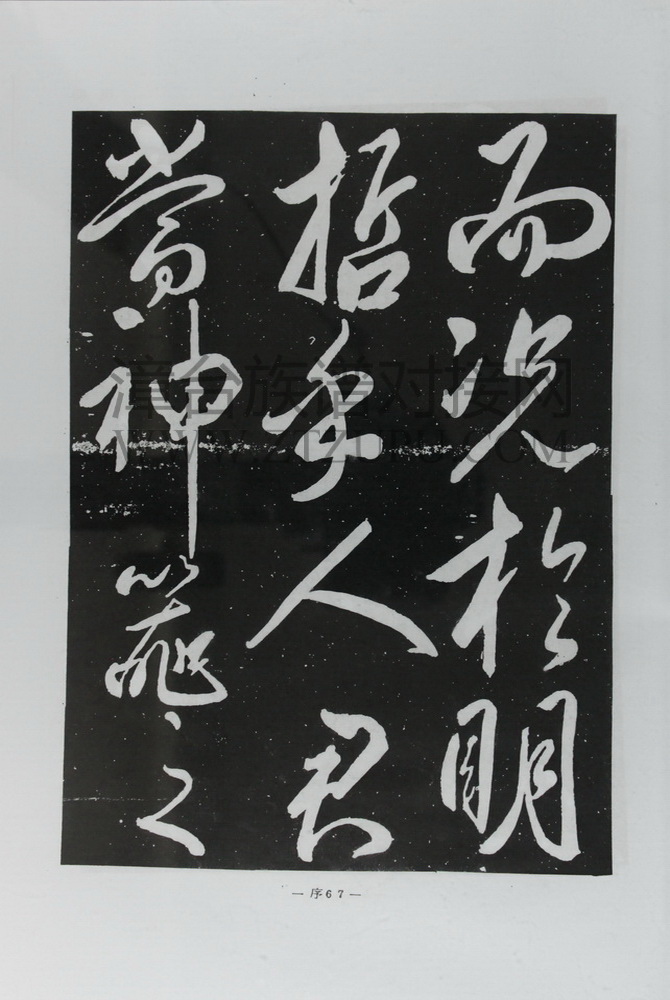 而況於明
哲乎人君
當神器之
漳台族谱对接网
WWW.ZTZUPU.COM
—序67—